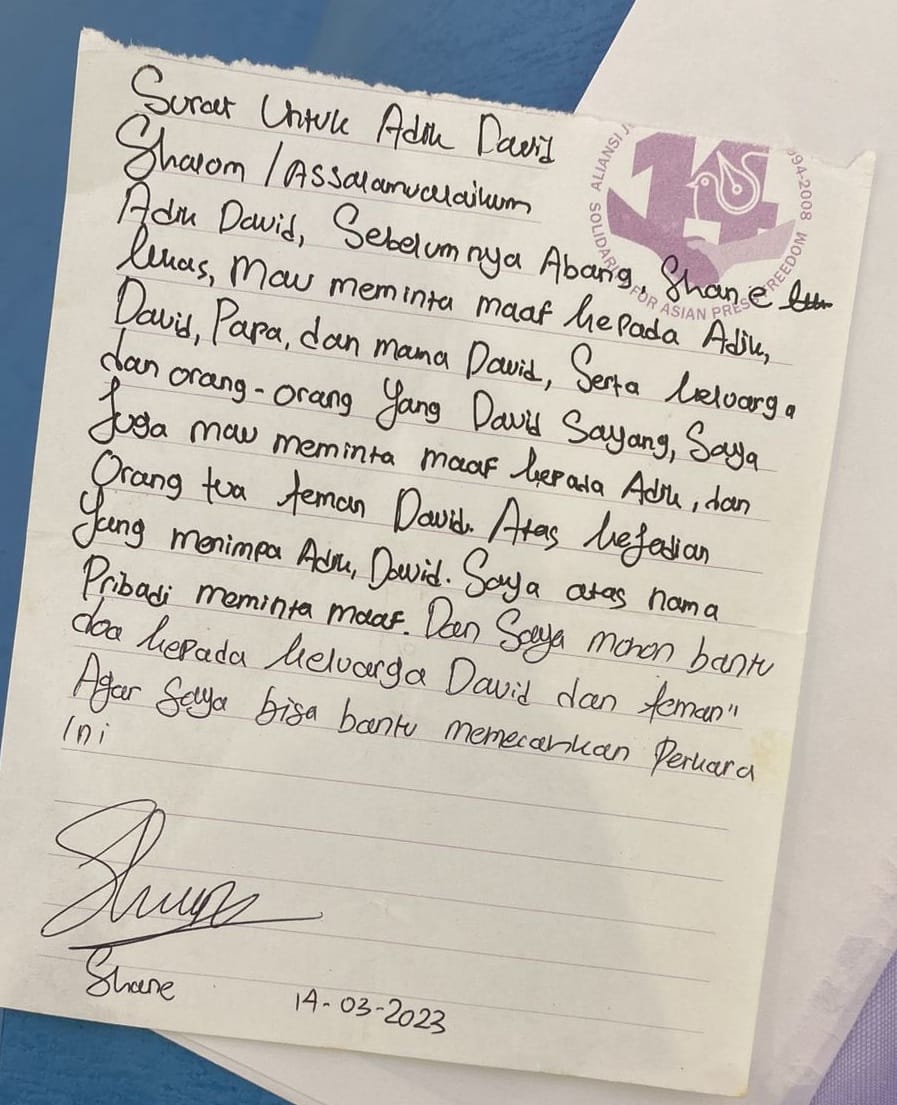 Surat Untuk Adik David
Shalom / Assalamualaikum
Adik David, Sebelumnya Abang, Shane
lukas, Mau meminta maaf kepada Adik,
David, Papa, dan mama David, Serta keluarga
dan orang-orang Yang David Sayang, Saya
Juga mau meminta maaf kepada Adik, dan
Orang tua teman David. Atas kejadian
Yang menimpa Adik, David. Saya atas nama
Pribadi meminta maaf. Dan Saya mohon bantu
doa kepada keluarga David dan teman"
Agar Saya bisa bantu memecahkan Perkara
Ini
Shane
14-03-2023
ALIANSI
14
94-2008
FOR ASIAN PRESS FREEDOM